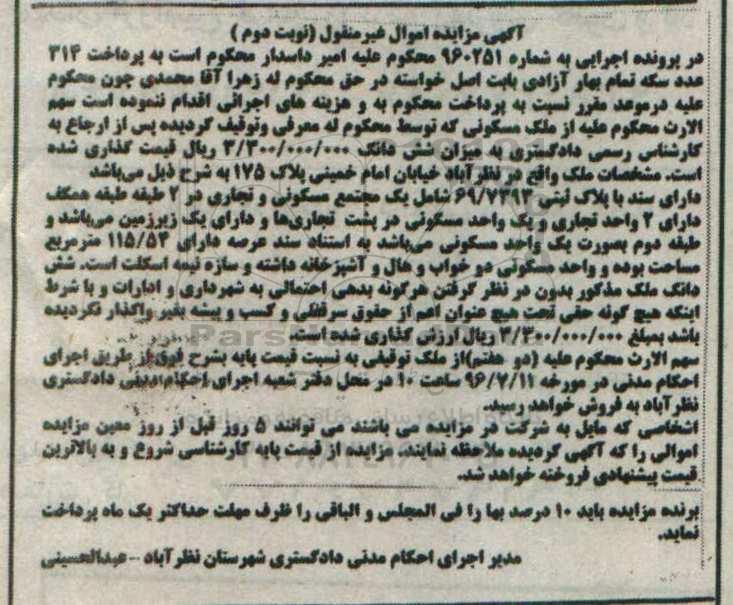 آگهی مزایده اموال غیرمنقول (نوبت دوم)
در پرونده اجرایی به شماره ۹۶۰۲۵۱ محکوم علیه امیر داسدار محکوم است به پرداخت ۳۱۴
عدد سکه تمام بهار آزادی بابت اصل خواسته در حق محکوم له زهرا آقا محمدی چون محکوم
علیه درموعد مقرر نسبت به پرداخت محکوم به و هزینه های اجرائی اقدام ننموده است سهم
الارث محکوم علیه از ملک مسکونی که توسط محکوم له معرفی وتوقیف گردیده پس از ارجاع به
کارشناس رسمی دادگستری به میزان شش دانگ ۳/۳۰۰/۰۰۰/۰۰۰ ریال قیمت گذاری شده
است. مشخصات ملک واقع در نظرآباد خیابان امام خمینی پلاک ۱۷۵ به شرح ذیل می‌باشد
دارای سند با پلاک ثبتی ۶۹/۷۳۹۳ شامل یک مجتمع مسکونی و تجاری در ۲ طبقه طبقه همکف
دارای ۲ واحد تجاری و یک واحد مسکونی در پشت تجاری‌ها و دارای یک زیرزمین می‌باشد و
طبقه دوم بصورت یک واحد مسکونی می‌باشد به استناد سند عرصه دارای ۱۱۵/۵۳ مترمربع
مساحت بوده و واحد مسکونی دو خواب و هال و آشپزخانه داشته و سازه نیمه اسکلت است. شش
دانگ ملک مذکور بدون در نظر گرفتن هرگونه بدهی احتمالی به شهرداری و ادارات و با شرط
اینکه هیچ گونه حقی تحت هیچ عنوان اعم از حقوق سرقفلی و کسب و پیشه بغیر واگذار نگردیده
باشد بمبلغ ۳/۳۰۰/۰۰۰/۰۰۰ ریال ارزش گذاری شده است.
سهم الارث محکوم علیه (دو هفتم)از ملک توقیفی به نسبت قیمت پایه بشرح فوق از طریق اجرای
احکام مدنی در مورخه ۹۶/۷/۱۱ ساعت ۱۰ در محل دفتر شعبه اجرای احکام مدنی دادگستری
نظرآباد به فروش خواهد رسید.
اشخاصی که مایل به شرکت در مزایده می باشند می توانند ۵ روز قبل از روز معین مزایده
اموالی را که آگهی گردیده ملاحظه نمایند. مزایده از قیمت پایه کارشناسی شروع و به بالاترین
قیمت پیشنهادی فروخته خواهد شد.
برنده مزایده باید ۱۰ درصد بها را فی المجلس و الباقی را ظرف مهلت حداکثر یک ماه پرداخت
نماید.
مدیر اجرای احکام مدنی دادگستری شهرستان نظرآباد – عبدالحسینی